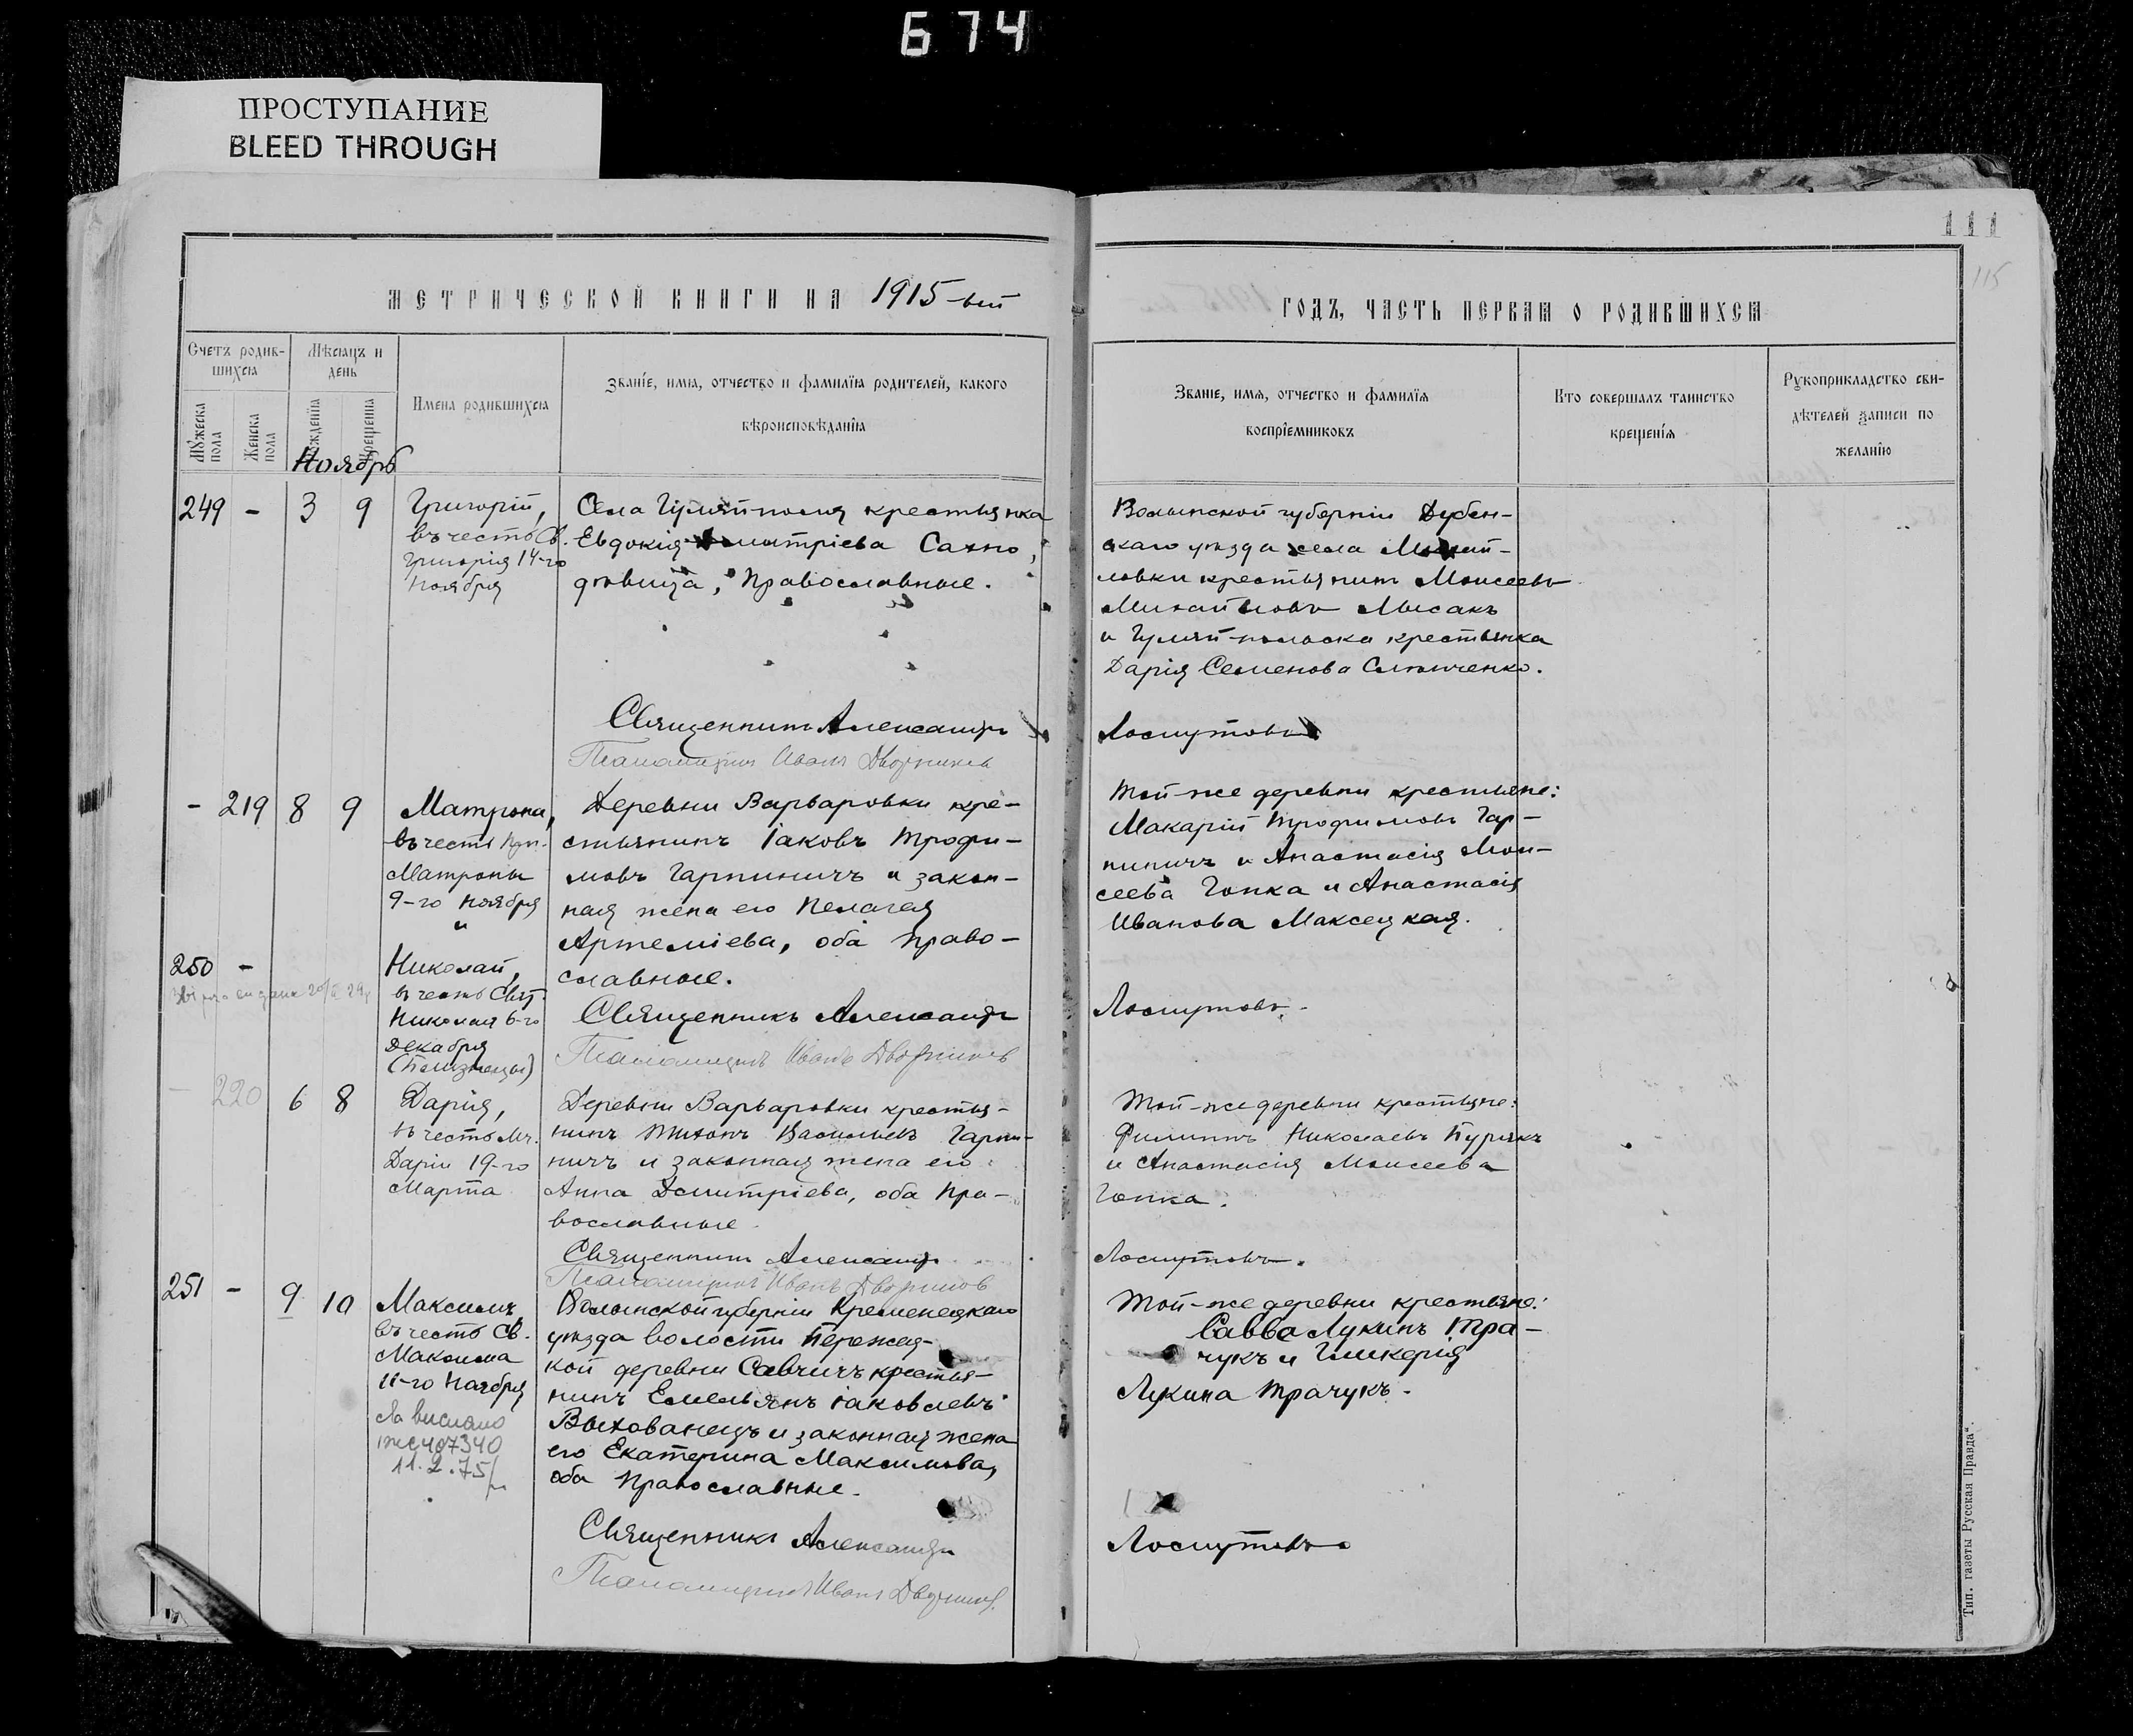 674
ПРОСТУПАНИЕ
BLEED THROUGH
111
115
МЕТРИЧЕСКОЙ КНИГИ НА 1915-ый
ГОДЪ, ЧАСТЬ ПЕРВАЯ О РОДИВШИХСЯ
Счетъ родив-
шихся
Мѣсяцъ и
день
Мужеска
пола
Женска
пола
Рожденія
Крещенія
Имена родившихся
Званіе, имя, отчество и фамилія родителей, какого
вѣроисповѣданія
Званіе, имя, отчество и фамилія
воспріемниковъ
Кто совершалъ таинство
крещенія
Рукоприкладство сви-
дѣтелей записи по
желанію
Ноябрь
249 - 3 9
Григорій,
въ честь Св.
Григорія 14-го
Ноября
Села Гуляй-поля крестьянка
Евдокія Димитріева Сахно,
дѣвица, Православные.
Волынской губерніи Дубен-
скаго уѣзда села
ловки крестьянинъ Моисеевъ
Михайловъ Мисакъ
и Гуляй-польска крестьянка
Дарія Семенова Слюченко.
Священникъ Александръ
Лоскутовъ
Псаломщикъ Иванъ Дворников
- 219 8 9
Матрона,
въ честь Прп.
Матроны
9-го Ноября
и
Деревни Варваровки кре-
стьянинъ Іаковъ Трофи-
мовъ Гарпиничъ и закон-
ная жена его Пелагея
Артеміева, оба право-
славные.
Той-же деревни крестьяне:
Макарій Трофимовъ Гар-
пиничъ и Анастасія Мои-
сеева Гопка и Анастасія
Иванова Максецкая.
250 -
Николай,
въ честь Свят.
Николая 6-го
Декабря
(Близнецы)
Священникъ Александръ
Лоскутовъ.
Псаломщикъ Иванъ Дворников
- 220 6 8
Дарія,
въ честь Мч.
Даріи 19-го
Марта
Деревни Варваровки крестья-
нинъ Тихонъ Васильевъ Гарпи-
ничъ и законная жена его
Анна Димитріева, оба Пра-
вославные.
Той-же деревни крестьяне:
Филиппъ Николаевъ Бурякъ
и Анастасія Моисеева
Гопка.
Священникъ Александръ
Лоскутовъ.
Псаломщикъ Иванъ Дворников
251 - 9 10
Максимъ,
въ честь Св.
Максима
11-го Ноября
407340
11.2.75
Волынской губерніи Кременецкаго
уѣзда волости Бережец-
кой деревни Савчичъ крестья-
нинъ Емельянъ Іаковлевъ
Выхованецъ и законная жена
его Екатерина Максимова,
оба Православные.
Той-же деревни крестьяне:
Савва Лукинъ Тра-
чукъ и Гликерія
Лукина Трачукъ.
Священникъ Александръ
Лоскутовъ
Псаломщикъ Иванъ Дворников.
Тип. газеты Русская Правда".